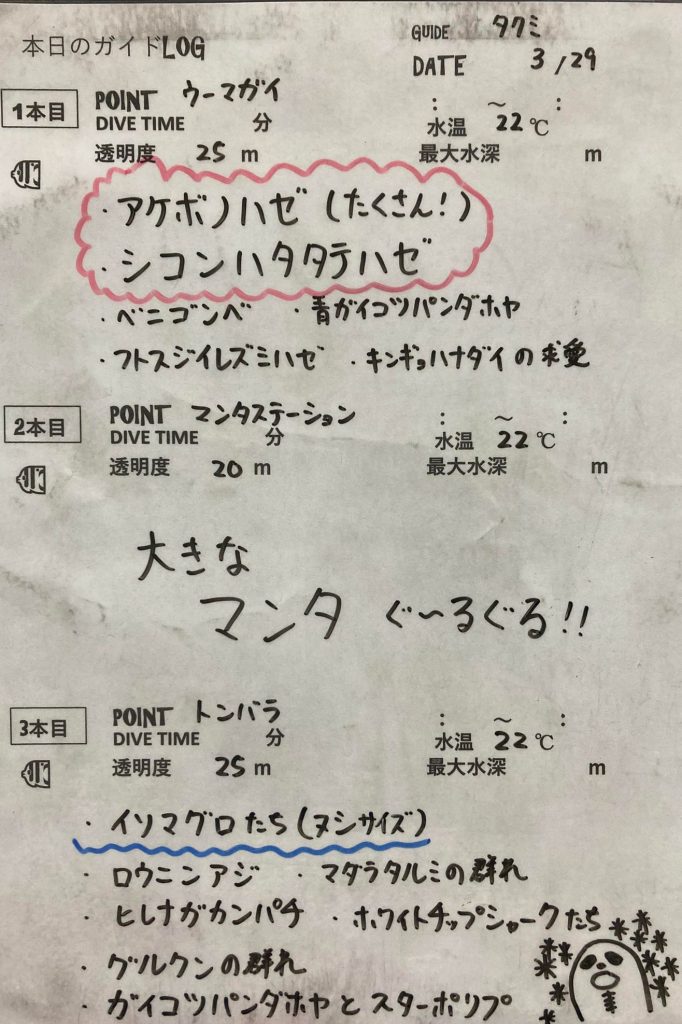 本日のガイドLOG
GUIDE タクミ
DATE 3/29
1本目 POINT ウーマガイ : ～ :
DIVE TIME 分 水温 22℃
透明度 25 m 最大水深 m
・アケボノハゼ(たくさん!)
・シコンハタタテハゼ
・ベニゴンベ ・青ガイコツパンダホヤ
・フトスジイレズミハゼ ・キンギョハナダイの求愛
2本目 POINT マンタステーション : ～ :
DIVE TIME 分 水温 22℃
透明度 20 m 最大水深 m
大きな
マンタ ぐ〜るぐる!!
3本目 POINT トンバラ : ～ :
DIVE TIME 分 水温 22℃
透明度 25 m 最大水深 m
・イソマグロたち(ヌシサイズ)
・ロウニンアジ ・マダラタルミの群れ
・ヒレナガカンパチ ・ホワイトチップシャークたち
・グルクンの群れ
・ガイコツパンダホヤとスターポリプ